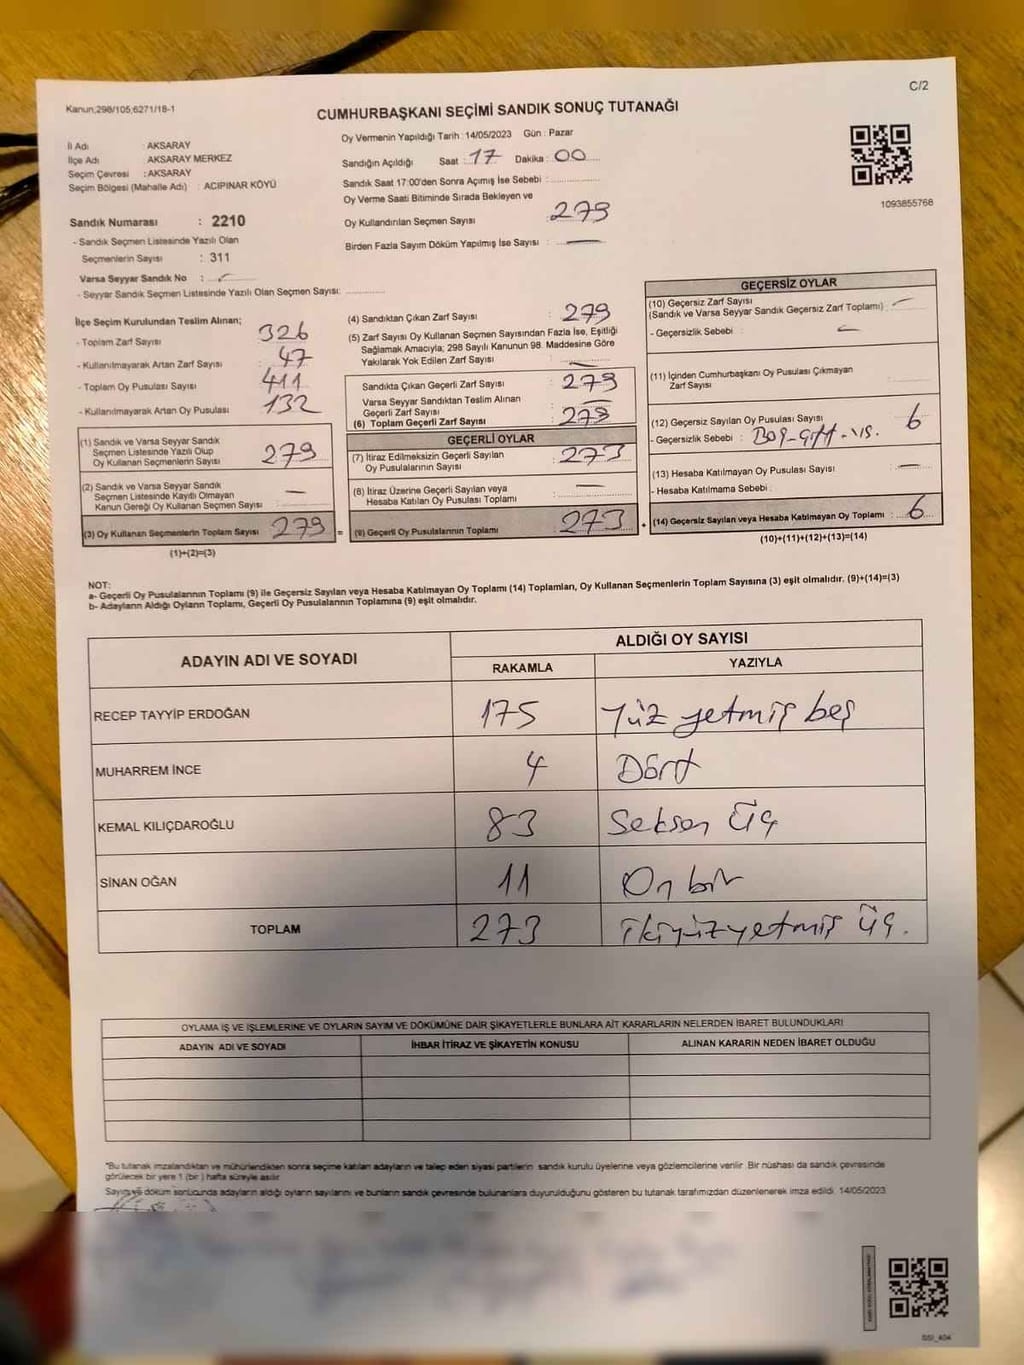 C/2
Kanun;298/105;6271/18-1
CUMHURBAŞKANI SEÇİMİ SANDIK SONUÇ TUTANAĞI
İl Adı : AKSARAY
İlçe Adı AKSARAY MERKEZ
Seçim Çevresi : AKSARAY
Seçim Bölgesi (Mahalle Adı) : ACIPINAR KÖYÜ
Sandık Numarası : 2210
- Sandık Seçmen Listesinde Yazılı Olan
Seçmenlerin Sayısı : 311
Varsa Seyyar Sandık No :
- Seyyar Sandık Seçmen Listesinde Yazılı Olan Seçmen Sayısı:
Oy Vermenin Yapıldığı Tarih : 14/05/2023 Gün : Pazar
Sandığın Açıldığı Saat : 17 Dakika : 00
Sandık Saat 17:00'den Sonra Açımış İse Sebebi :
Oy Verme Saati Bitiminde Sırada Bekleyen ve
Oy Kullandırılan Seçmen Sayısı : 279
Birden Fazla Sayım Döküm Yapılmış İse Sayısı : —
1093855768
İlçe Seçim Kurulundan Teslim Alınan;
- Toplam Zarf Sayısı : 326
- Kullanılmayarak Artan Zarf Sayısı : 47
- Toplam Oy Pusulası Sayısı : 411
- Kullanılmayarak Artan Oy Pusulası : 132
(1) Sandık ve Varsa Seyyar Sandık
Seçmen Listesinde Yazılı Olup
Oy Kullanan Seçmenlerin Sayısı : 279
(2) Sandık ve Varsa Seyyar Sandık
Seçmen Listesinde Kayıtlı Olmayan
Kanun Gereği Oy Kullanan Seçmen Sayısı : —
(3) Oy Kullanan Seçmenlerin Toplam Sayısı : 279 =
(1)+(2)=(3)
(4) Sandıktan Çıkan Zarf Sayısı : 279
(5) Zarf Sayısı Oy Kullanan Seçmen Sayısından Fazla İse, Eşitliği
Sağlamak Amacıyla; 298 Sayılı Kanunun 98. Maddesine Göre
Yakılarak Yok Edilen Zarf Sayısı : —
Sandıkta Çıkan Geçerli Zarf Sayısı : 279
Varsa Seyyar Sandıktan Teslim Alınan
Geçerli Zarf Sayısı : —
(6) Toplam Geçerli Zarf Sayısı : 279
GEÇERLİ OYLAR
(7) İtiraz Edilmeksizin Geçerli Sayılan
Oy Pusulalarının Sayısı : 273
(8) İtiraz Üzerine Geçerli Sayılan veya
Hesaba Katılan Oy Pusulası Toplamı : —
(9) Geçerli Oy Pusulalarının Toplamı : 273 +
GEÇERSİZ OYLAR
(10) Geçersiz Zarf Sayısı
(Sandık ve Varsa Seyyar Sandık Geçersiz Zarf Toplamı) : —
- Geçersizlik Sebebi : —
(11) İçinden Cumhurbaşkanı Oy Pusulası Çıkmayan
Zarf Sayısı :
(12) Geçersiz Sayılan Oy Pusulası Sayısı : 6
- Geçersizlik Sebebi : Boş-çift-vs.
(13) Hesaba Katılmayan Oy Pusulası Sayısı : —
- Hesaba Katılmama Sebebi :
(14) Geçersiz Sayılan veya Hesaba Katılmayan Oy Toplamı : 6
(10)+(11)+(12)+(13)=(14)
NOT:
a- Geçerli Oy Pusulalarının Toplamı (9) ile Geçersiz Sayılan veya Hesaba Katılmayan Oy Toplamı (14) Toplamları, Oy Kullanan Seçmenlerin Toplam Sayısına (3) eşit olmalıdır. (9)+(14)=(3)
b- Adayların Aldığı Oyların Toplamı, Geçerli Oy Pusulalarının Toplamına (9) eşit olmalıdır.
ADAYIN ADI VE SOYADI ALDIĞI OY SAYISI
RAKAMLA YAZIYLA
RECEP TAYYİP ERDOĞAN 175 Yüz yetmiş beş
MUHARREM İNCE 4 Dört
KEMAL KILIÇDAROĞLU 83 Seksen üç
SİNAN OĞAN 11 On bir
TOPLAM 273 ikiyüzyetmiş üç.
OYLAMA İŞ VE İŞLEMLERİNE VE OYLARIN SAYIM VE DÖKÜMÜNE DAİR ŞİKAYETLERLE BUNLARA AİT KARARLARIN NELERDEN İBARET BULUNDUKLARI
ADAYIN ADI VE SOYADI İHBAR İTİRAZ VE ŞİKAYETİN KONUSU ALINAN KARARIN NEDEN İBARET OLDUĞU
*Bu tutanak imzalandıktan ve mühürlendikten sonra seçime katılan adayların ve talep eden siyasi partilerin sandık kurulu üyelerine veya gözlemcilerine verilir. Bir nüshası da sandık çevresinde
görülecek bir yere 1 (bir) hafta süreyle asılır.
Sayım ve döküm sonucunda adayların aldığı oyların sayılarını ve bunların sandık çevresinde bulunanlara duyurulduğunu gösteren bu tutanak tarafımızdan düzenlenerek imza edildi. 14/05/2023